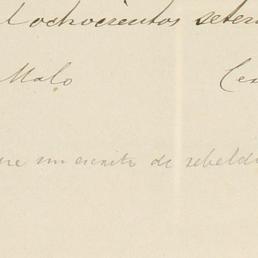 l ochocientos seten
Malo Ce
re un escrito de rebeld